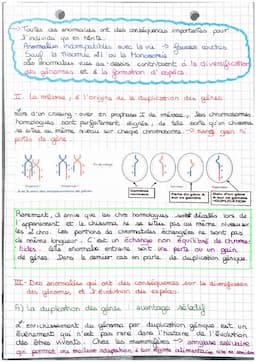 → Toutes ces anomalies ont des conséquences importantes pour
l'individu qui en hérite.
Anomalies incompatibles avec la vie → fausses couches
Sauf : la trisomie 21 ou la Monosomie
Les anomalies vues au-dessus contribuent à la diversification
des génomes et à la formation d'espèces.
II. La méiose, à l'origine de la duplication des gènes.
Lors d'un crossing-over en prophase I de méiose, les chromosomes
homologues sont parfaitement alignés, de telle sorte qu'un chiasma
se situe au même niveau sur chaque chromosome → sans gain ni
pertes de gène
Rarement, il arrive que les chro homologues soit décalés lors de
l'appariement et le chiasma ne se situe pas au même niveau sur
les 2 chro. Les portions de chromatides échangées ne sont pas
de même longueur. C'est un échange non équilibré de chroma-
tides. Cette anomalie entraine soit une perte ou un gain
de gènes. Dans le dernier cas on parle de duplication génique.
III - Des anomalies qui ont des conséquences sur la diversification
des génomes, et l'évolution des espèces.
A) la duplication des gènes : avantage sélectif
L'enrichissement du génome par duplication génique est un
évènement qui n'est pas rare dans l'histoire de l'évolution
des êtres vivants. Chez les mammifères → amylase salivaire
qui permet une meilleure adaptation à un régime alimentaire